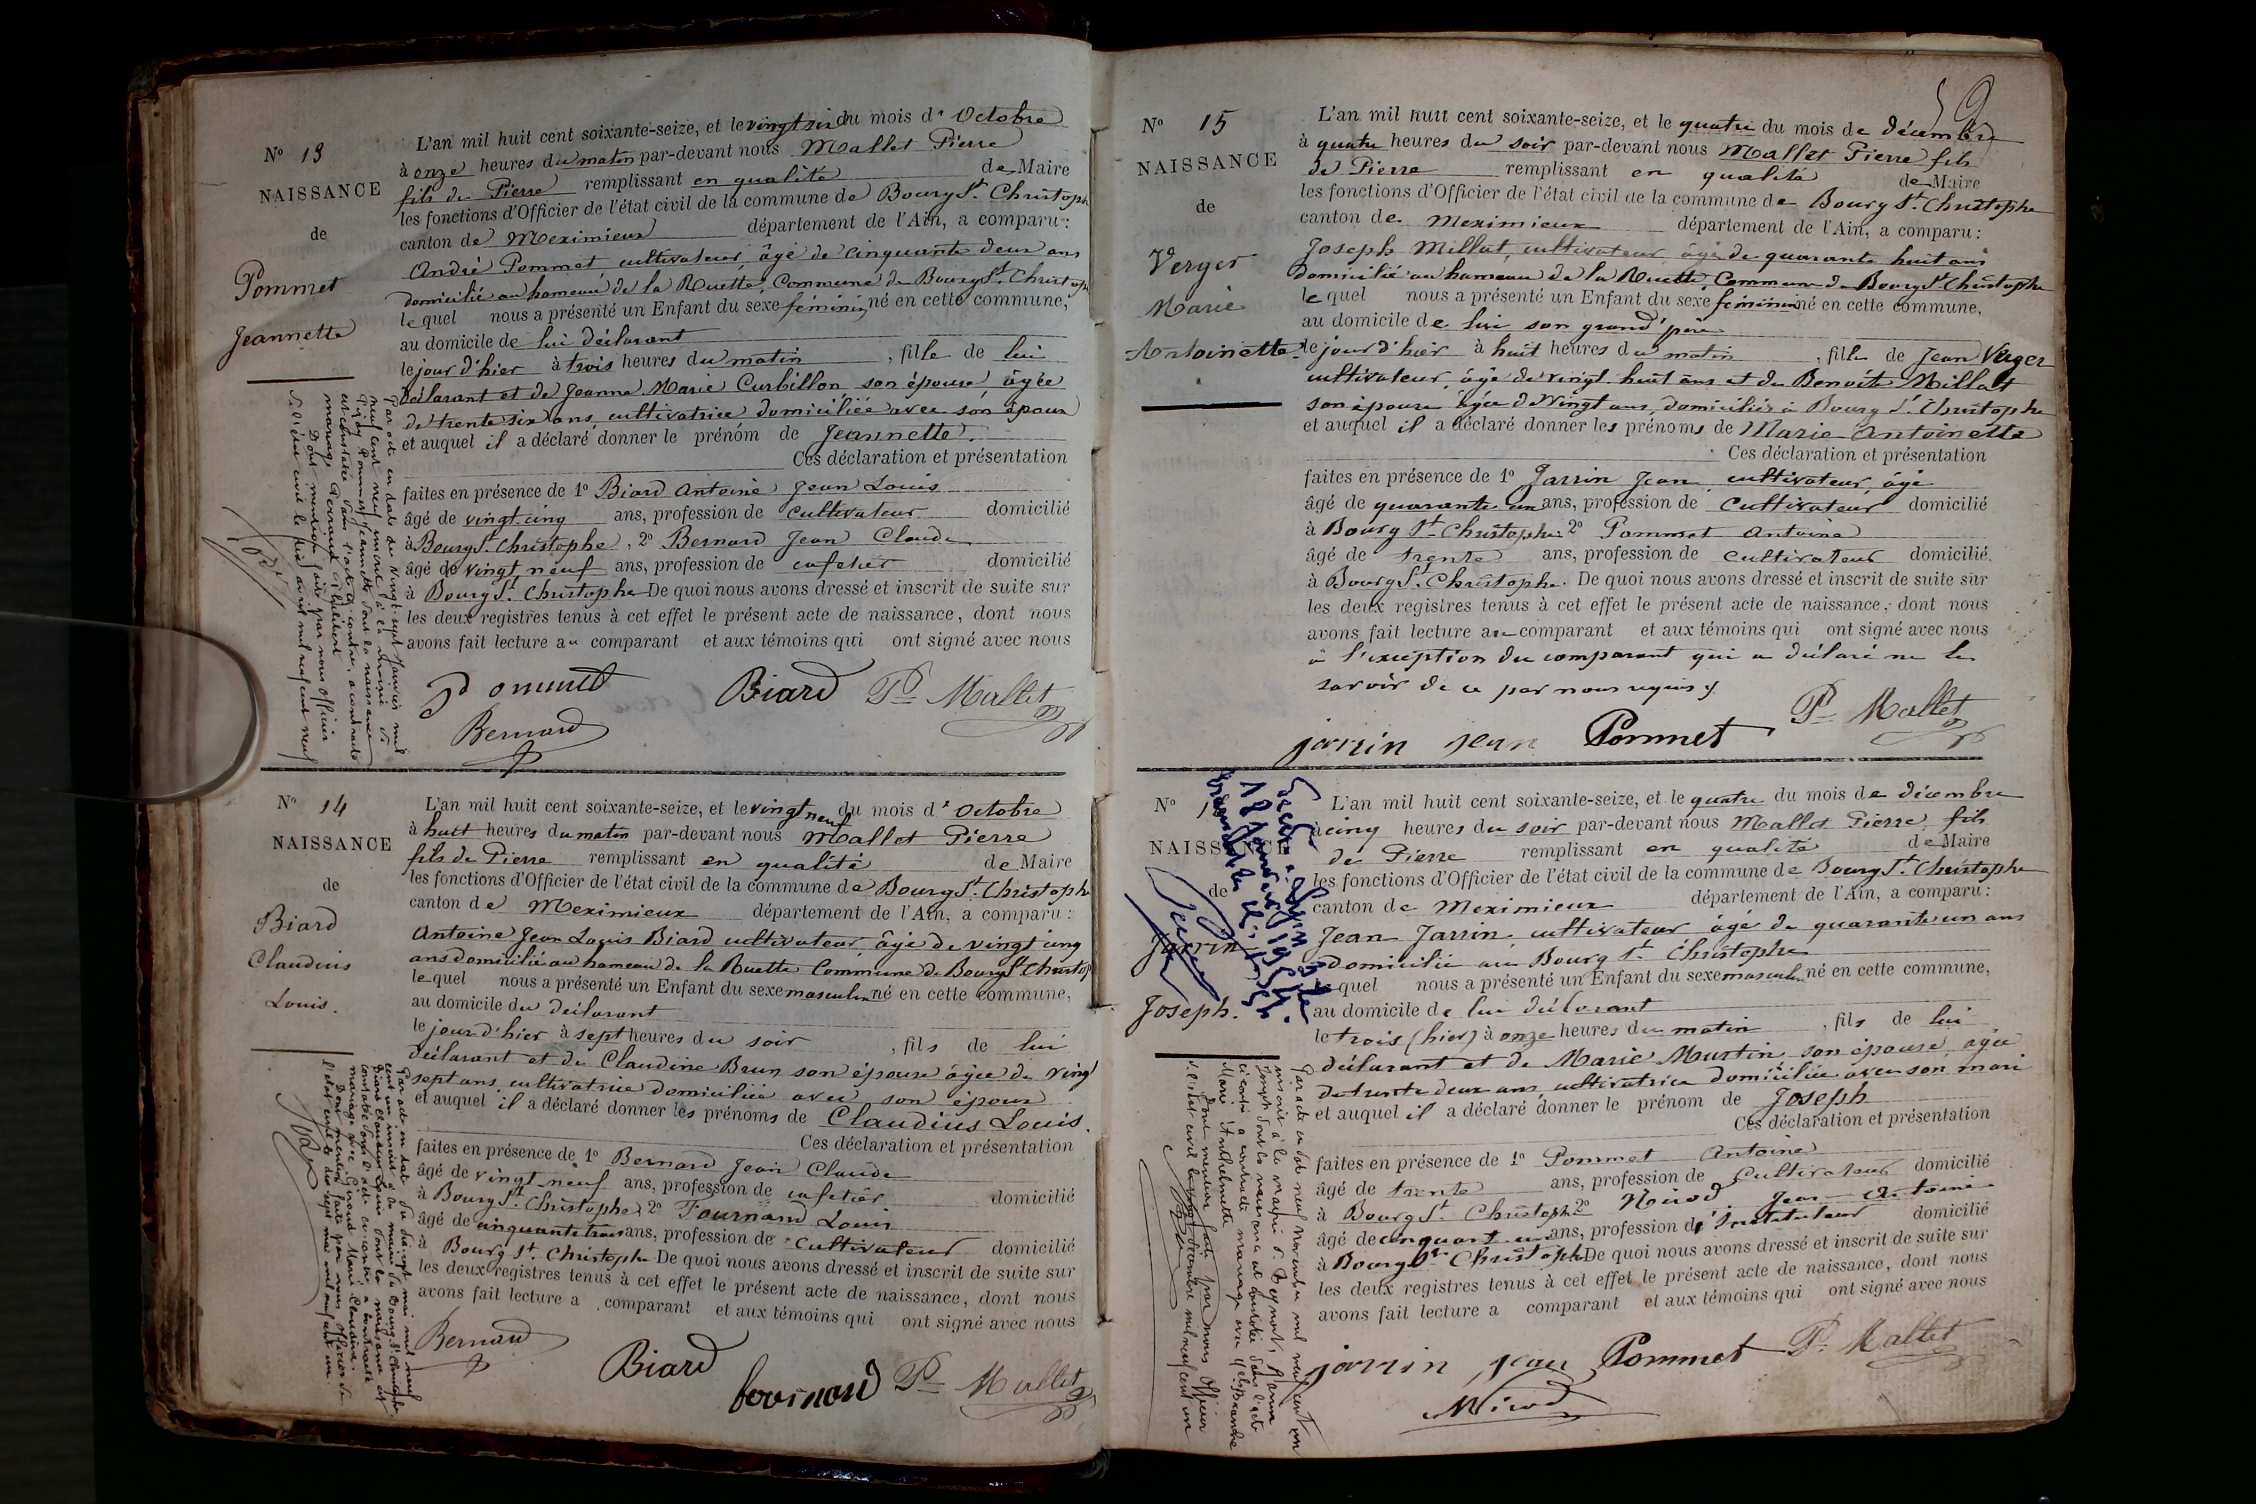 Nº 13
NAISSANCE
de
Pommet
Jeannette
L'an mil huit cent soixante-seize, et le vingt six du mois d' Octobre
à onze heures du matin par-devant nous Mallet Pierre
fils de Pierre remplissant en qualité de Maire
les fonctions d'Officier de l'état civil de la commune de Bourg St. Christophe
canton de Meximieux département de l'Ain, a comparu :
André Pommet cultivateur, âgé de cinquante deux ans
domicilié au hameau de la Ruette, Commune de Bourg St. Christophe
lequel nous a présenté un Enfant du sexe féminin né en cette commune,
au domicile de lui déclarant
le jour d'hier à trois heures du matin , fille de lui
déclarant et de Jeanne Marie Curbillon son épouse âgée
de trente six ans, cultivatrice domiciliée avec son époux
et auquel il a déclaré donner le prénom de Jeannette.
Ces déclaration et présentation
faites en présence de 1º Biard Antoine Jean Louis
âgé de vingt cinq ans, profession de cultivateur domicilié
à Bourg St. Christophe, 2º Bernard Jean Claude
âgé de vingt neuf ans, profession de cafetier domicilié
à Bourg St. Christophe De quoi nous avons dressé et inscrit de suite sur
les deux registres tenus à cet effet le présent acte de naissance, dont nous
avons fait lecture au comparant et aux témoins qui ont signé avec nous
Pommet Biard Pre Mallet
Bernard
Par acte en date du vingt-sept Janvier mil
neuf cent neuf inscrit à la mairie de
Pommet Jeannette dont la naissance
est constatée dans l'acte ci-contre, a contracté
mariage avec Philibert
Dont mention faite par nous officier
de l'état civil le mil neuf cent neuf
Nº 14
NAISSANCE
de
Biard
Claudius
Louis.
L'an mil huit cent soixante-seize, et le vingt neuf du mois d' Octobre
à huit heures du matin par-devant nous Mallet Pierre
fils de Pierre remplissant en qualité de Maire
les fonctions d'Officier de l'état civil de la commune de Bourg St. Christophe
canton de Meximieux département de l'Ain, a comparu :
Antoine Jean Louis Biard cultivateur, âgé de vingt cinq
ans domicilié au hameau de la Ruette Commune de Bourg St Christop
lequel nous a présenté un Enfant du sexe masculin né en cette commune,
au domicile du déclarant
le jour d'hier à sept heures du soir , fils de lui
déclarant et de Claudine Brun son épouse âgée de vingt
sept ans, cultivatrice domiciliée avec son époux
et auquel il a déclaré donner les prénoms de Claudius Louis.
Ces déclaration et présentation
faites en présence de 1º Bernard Jean Claude
âgé de vingt neuf ans, profession de cafetier domicilié
à Bourg St. Christophe, 2º Fournand Louis
âgé de cinquante trois ans, profession de cultivateur domicilié
à Bourg St. Christophe De quoi nous avons dressé et inscrit de suite sur
les deux registres tenus à cet effet le présent acte de naissance, dont nous
avons fait lecture a comparant et aux témoins qui ont signé avec nous
Bernard Biard fournand Pre Mallet
Par acte en date du dix-sept mai mil neuf
cent un inscrit à la mairie de Bourg St Christophe
Biard Claudius Louis dont la naissance est
constatée dans l'acte ci-contre a contracté
mariage avec Girond Marie Claudine.
Dont mention faite par nous Officier de
l'état civil le dix sept mai mil neuf cent un
Nº 15
NAISSANCE
de
Verger
Marie
Antoinette
L'an mil huit cent soixante-seize, et le quatre du mois de décembre
à quatre heures du soir par-devant nous Mallet Pierre fils
de Pierre remplissant en qualité de Maire
les fonctions d'Officier de l'état civil de la commune de Bourg St. Christophe
canton de Meximieux département de l'Ain, a comparu :
Joseph Millat, cultivateur, âgé de quarante huit ans
domicilié au hameau de la Ruette, Commune de Bourg St Christophe
lequel nous a présenté un Enfant du sexe féminin né en cette commune,
au domicile de lui son grand'père
le jour d'hier à huit heures du matin , fille de Jean Verger
cultivateur, âgé de vingt huit ans et de Benoîte Millat
son épouse âgée de vingt ans, domiciliés à Bourg St. Christophe
et auquel il a déclaré donner les prénoms de Marie Antoinette
Ces déclaration et présentation
faites en présence de 1º Jarrin Jean cultivateur, âgé
âgé de quarante un ans, profession de cultivateur domicilié
à Bourg St. Christophe 2º Pommet Antoine
âgé de trente ans, profession de cultivateur domicilié
à Bourg St. Christophe. De quoi nous avons dressé et inscrit de suite sur
les deux registres tenus à cet effet le présent acte de naissance, dont nous
avons fait lecture au comparant et aux témoins qui ont signé avec nous
à l'exception du comparant qui a déclaré ne le
savoir de ce par nous requis
jarrin jean Pommet Pre Mallet
NAISSANCE
de
Jarrin
Joseph.
Décédé à Lyon
18 Janvier 1954.
L'an mil huit cent soixante-seize, et le quatre du mois de décembre
à cinq heures du soir par-devant nous Mallet Pierre, fils
de Pierre remplissant en qualité de Maire
les fonctions d'Officier de l'état civil de la commune de Bourg St. Christophe
canton de Meximieux département de l'Ain, a comparu :
Jean Jarrin, cultivateur âgé de quarante un ans
domicilié au Bourg St. Christophe
lequel nous a présenté un Enfant du sexe masculin né en cette commune,
au domicile de lui déclarant
le trois (hier) à onze heures du matin , fils de lui
déclarant et de Marie Murtin son épouse, âgée
de trente deux ans, cultivatrice domiciliée avec son mari
et auquel il a déclaré donner le prénom de Joseph
Ces déclaration et présentation
faites en présence de 1º Pommet Antoine
âgé de trente ans, profession de cultivateur domicilié
à Bourg St. Christophe 2º Nicod Jean Antoine
âgé de cinquant un ans, profession d'instituteur domicilié
à Bourg St Christophe De quoi nous avons dressé et inscrit de suite sur
les deux registres tenus à cet effet le présent acte de naissance, dont nous
avons fait lecture a comparant et aux témoins qui ont signé avec nous
jarrin jean Pommet Pre Mallet
Nicod
Par acte en date neuf Novembre mil neuf cent un
inscrit à la mairie de Jarrin
Joseph dont la naissance est constatée dans l'acte
ci-contre a contracté mariage avec
Marie Anthelmette
Dont mention faite par nous Officier
de l'état civil le décembre mil neuf cent un